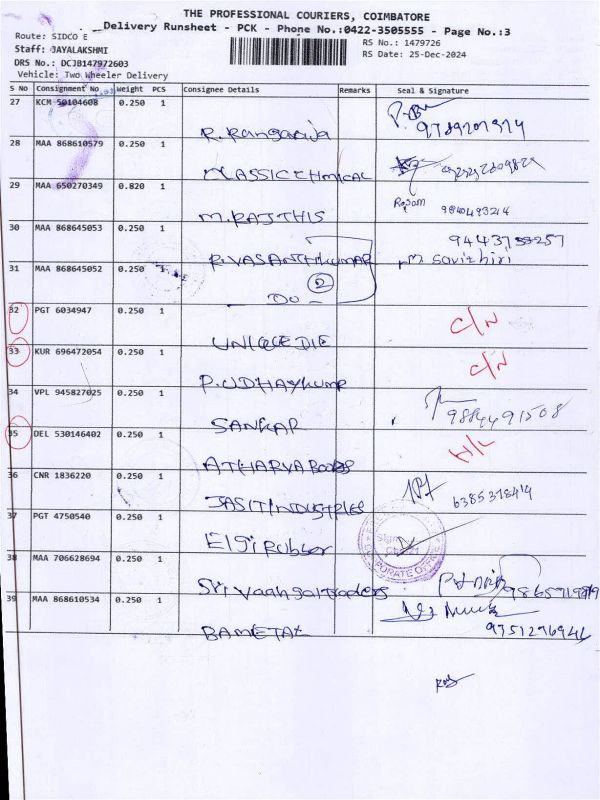 THE PROFESSIONAL COURIERS, COIMBATORE
Delivery Runsheet - PCK - Phone No.:0422-3505555 - Page No.:3
Route: SIDCO E
RS No.: 1479726
Staff: JAYALAKSHMI
RS Date: 25-Dec-2024
DRS No.: DCJB147972603
Vehicle: Two Wheeler Delivery
S No Consignment No Weight PCS Consignee Details Remarks Seal & Signature
27 KCM 50104608 0.250 1
R. Rangaraja
28 MAA 868610579 0.250 1
CLASSIC CHMICAL
29 MAA 650270349 0.820 1
Rajam
M. RAJTHIS
9840493244
30 MAA 868645053 0.250 1
R. VASANTHKUMAR
M. Savithiri
31 MAA 868645052 0.250 1
2
DO
32 PGT 6034947 0.250 1
C/N
UNIQUE DIE
33 KUR 696472054 0.250 1
C/N
P. UDHAYKUMR
34 VPL 945827025 0.250 1
9884491508
SANKAR
35 DEL 530146402 0.250 1
H/L
ATHARVA Books
36 CNR 1836220 0.250 1
JASIT INDUSTRIES
37 PGT 4750540 0.250 1
CORPORATE OFFICE
Elgi Rubber
38 MAA 706628694 0.250 1
Sri Vaahgai traders
39 MAA 868610534 0.250 1
9751276946
BAMETAL